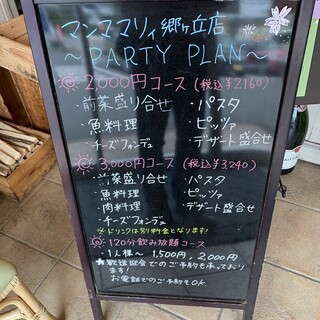 マンママリィ郷ヶ丘店
～PARTY PLAN～
2,000円コース(税込¥2160)
・前菜盛り合せ ・パスタ
・魚料理 ・ピッツァ
・チーズフォンデュ ・デザート盛合せ
3,000円コース(税込¥3240)
・前菜盛り合せ ・パスタ
・魚料理 ・ピッツァ
・肉料理 ・デザート盛合せ
・チーズフォンデュ
※ドリンクは別料金となります!
120分飲み放題コース
・1人様～ 1,500円, 2,000円
★歓送迎会でのご予約も承っており
ます!
お電話でのご予約もOK.